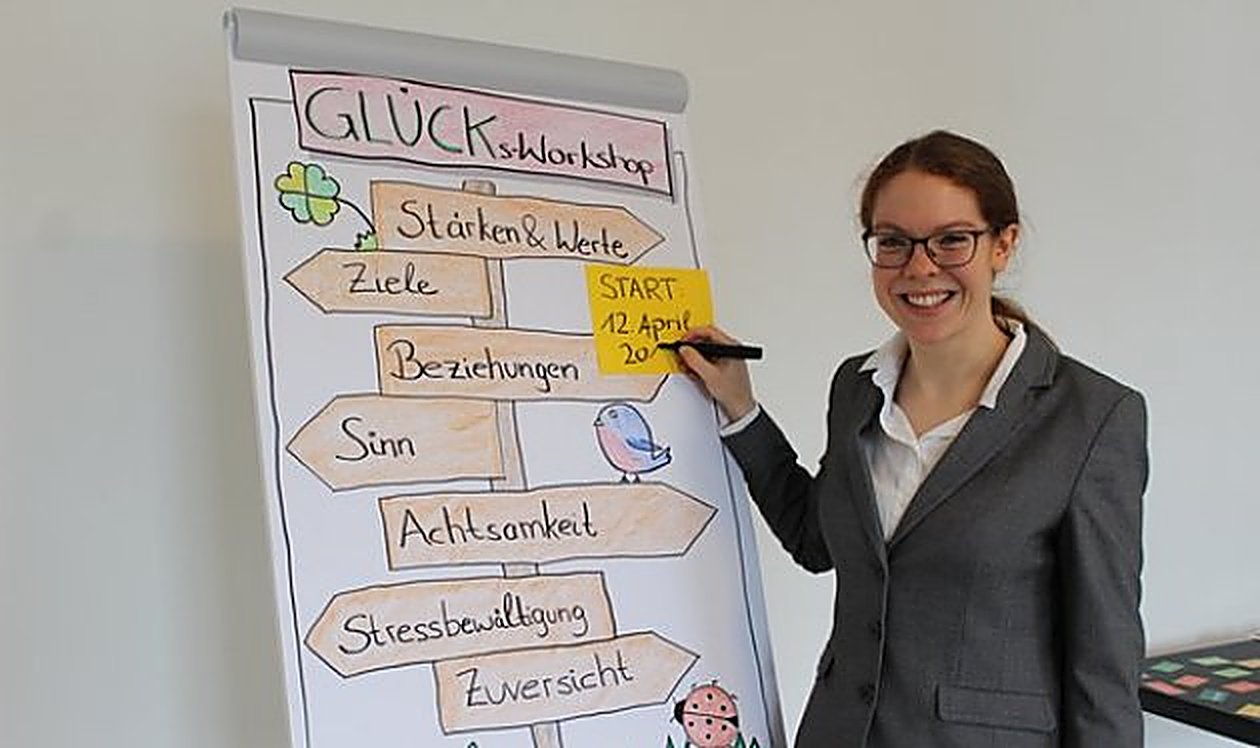 GLÜCKs-Workshop
Stärken & Werte
Ziele
START
12. April
20
Beziehungen
Sinn
Achtsamkeit
Stressbewältigung
Zuversicht